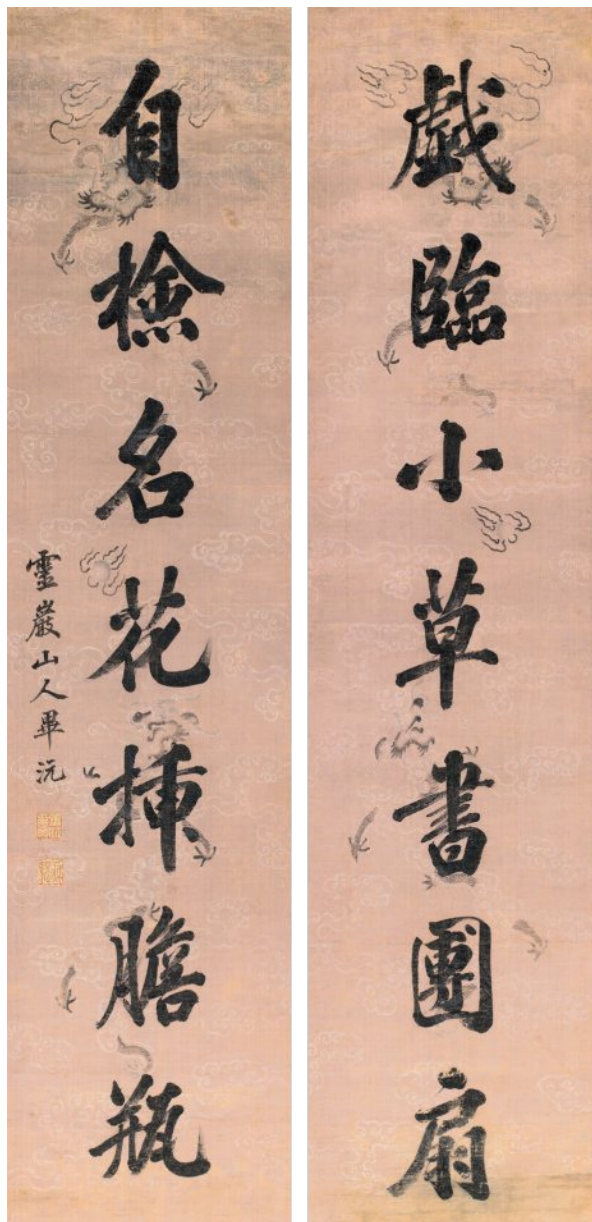 戲臨小草書團扇
自撿名花揷膽瓶
靈巖山人畢沅